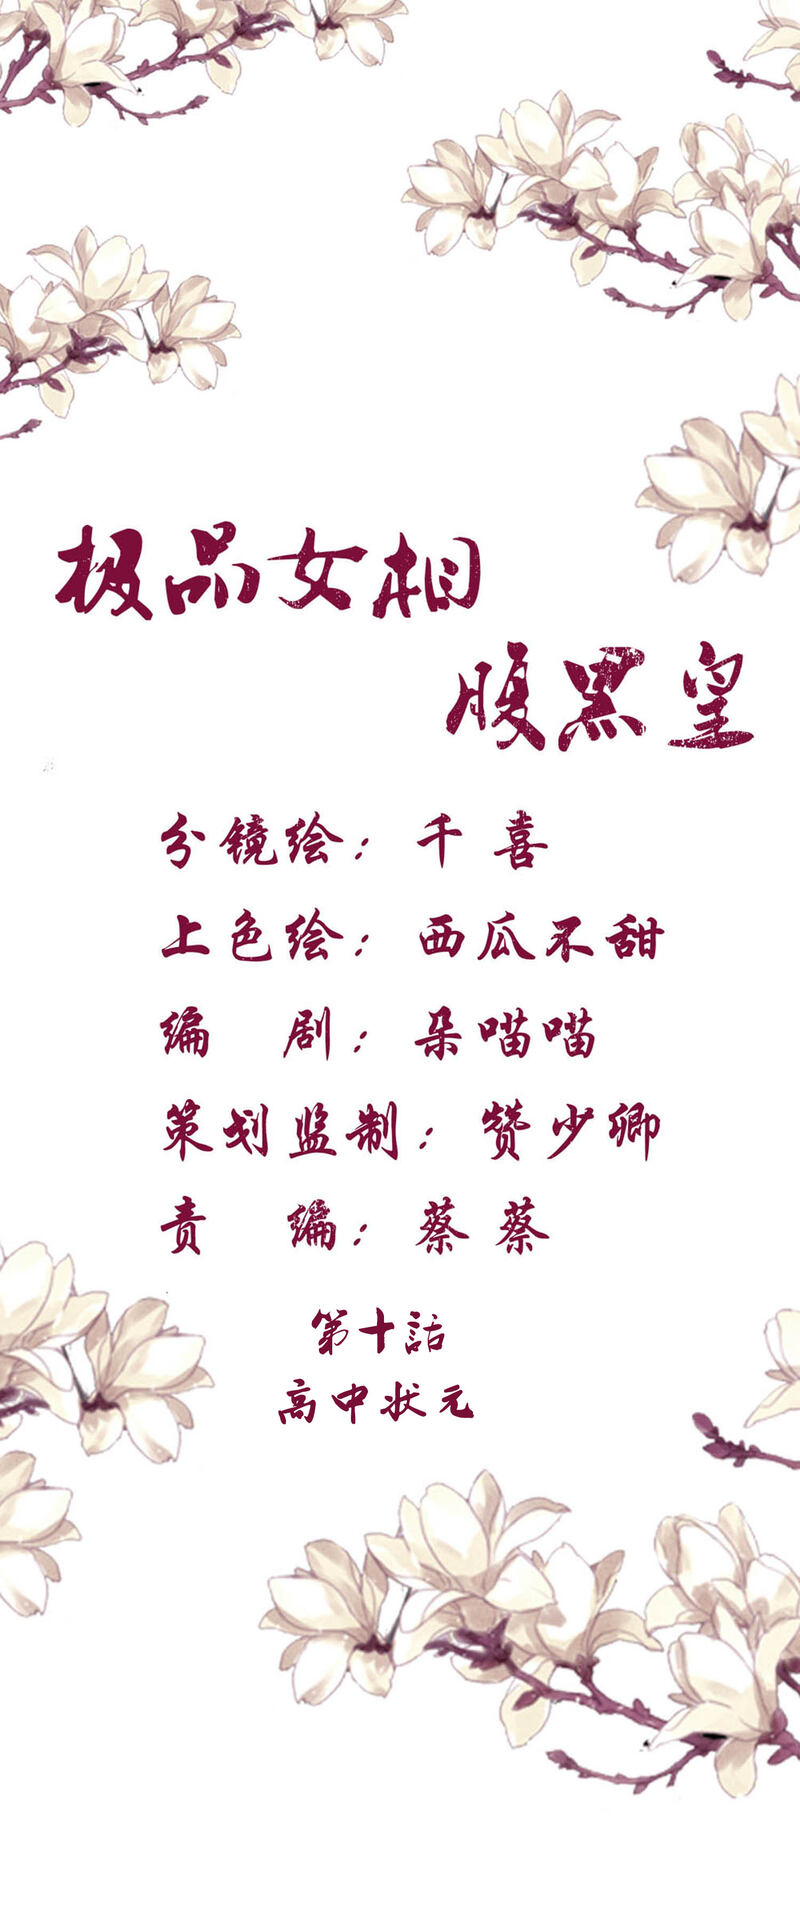 极品女相
腹黑皇
分镜绘：千喜
上色绘：西瓜不甜
编剧：朵喵喵
策划监制：赞少卿
责编：蔡蔡
第十話
高中状元